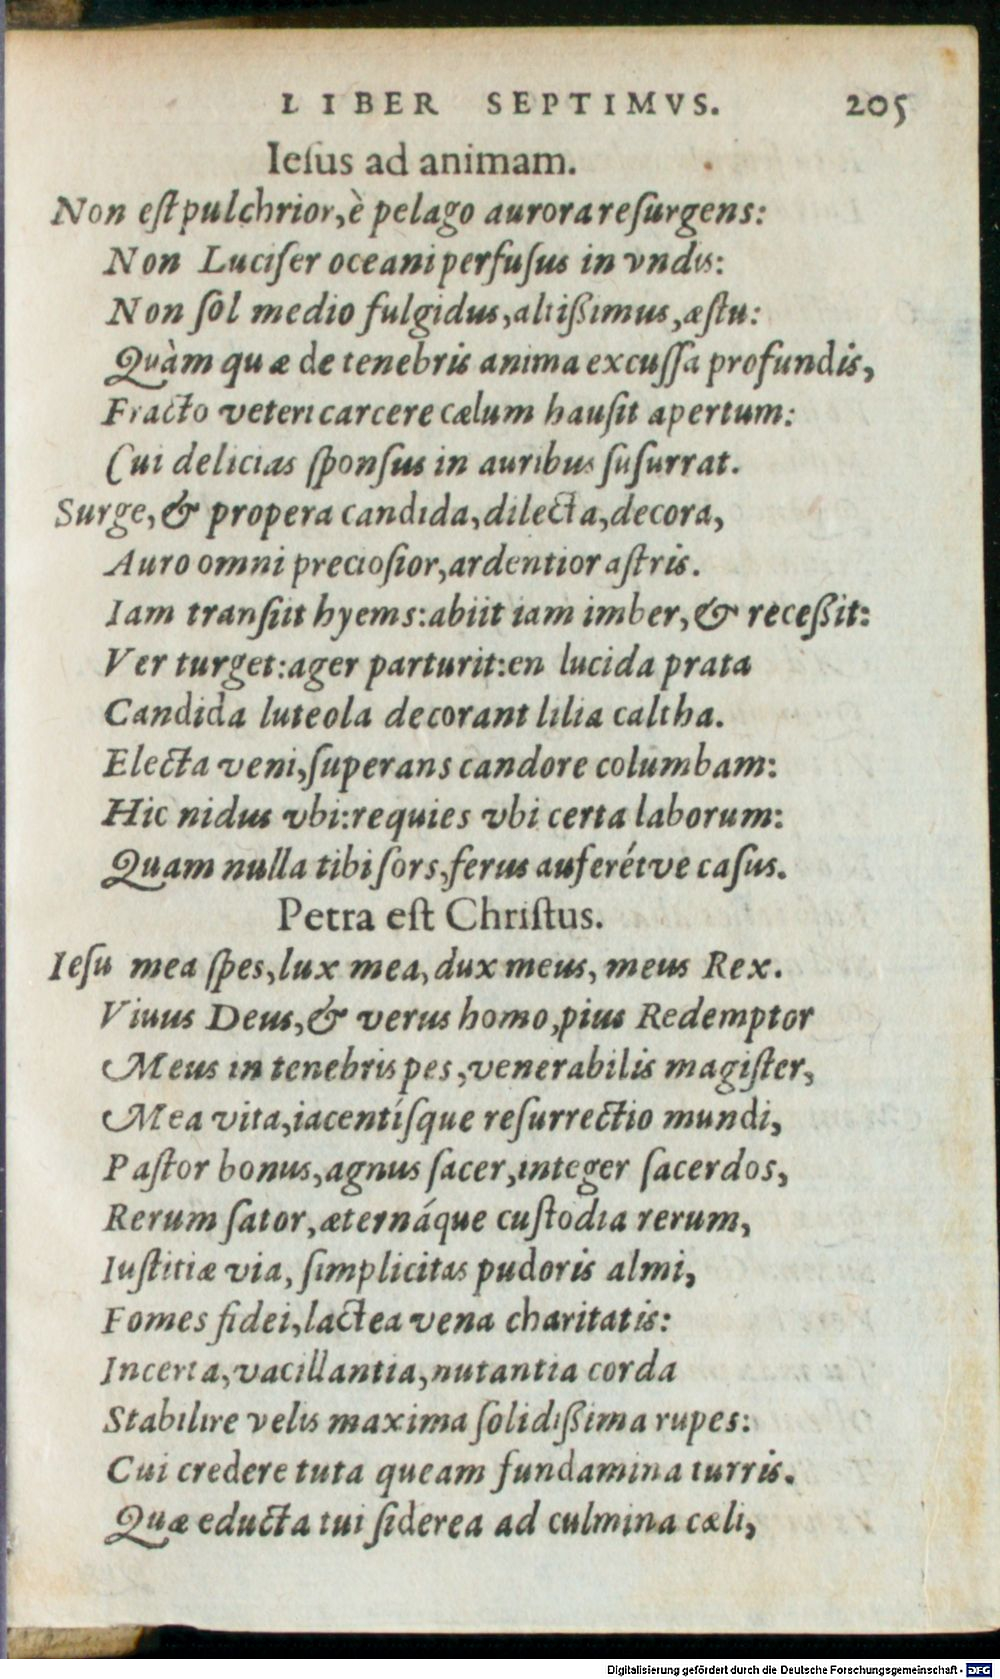 LIBER SEPTIMVS. 205
Ieſus ad animam.
Non eſt pulchrior, è pelago aurora reſurgens:
Non Lucifer oceani perfuſus in vndis:
Non ſol medio fulgidus, altißimus, æſtu:
Quàm quæ de tenebris anima excuſſa profundis,
Fracto veteri carcere cælum hauſit apertum:
Cui delicias ſponſus in auribus ſuſurrat.
Surge, & propera candida, dilecta, decora,
Auro omni preciosior, ardentior aſtris.
Iam tranſiit hyems: abiit iam imber, & receßit:
Ver turget: ager parturit: en lucida prata
Candida luteola decorant lilia caltha.
Electa veni, ſuperans candore columbam:
Hic nidus vbi: requies vbi certa laborum:
Quam nulla tibi ſors, ferus auferétve caſus.
Petra eſt Chriſtus.
Ieſu mea ſpes, lux mea, dux meus, meus Rex.
Viuus Deus, & verus homo, pius Redemptor
Meus in tenebris pes, venerabilis magiſter,
Mea vita, iacentíſque reſurrectio mundi,
Paſtor bonus, agnus ſacer, integer ſacerdos,
Rerum ſator, æternáque cuſtodia rerum,
Iuſtitiæ via, ſimplicitas pudoris almi,
Fomes fidei, lactea vena charitatis:
Incerta, vacillantia, nutantia corda
Stabilire velis maxima ſolidißima rupes:
Cui credere tuta queam fundamina turris.
Quæ educta tui ſiderea ad culmina cæli,
Digitalisierung gefördert durch die Deutsche Forschungsgemeinschaft - DFG